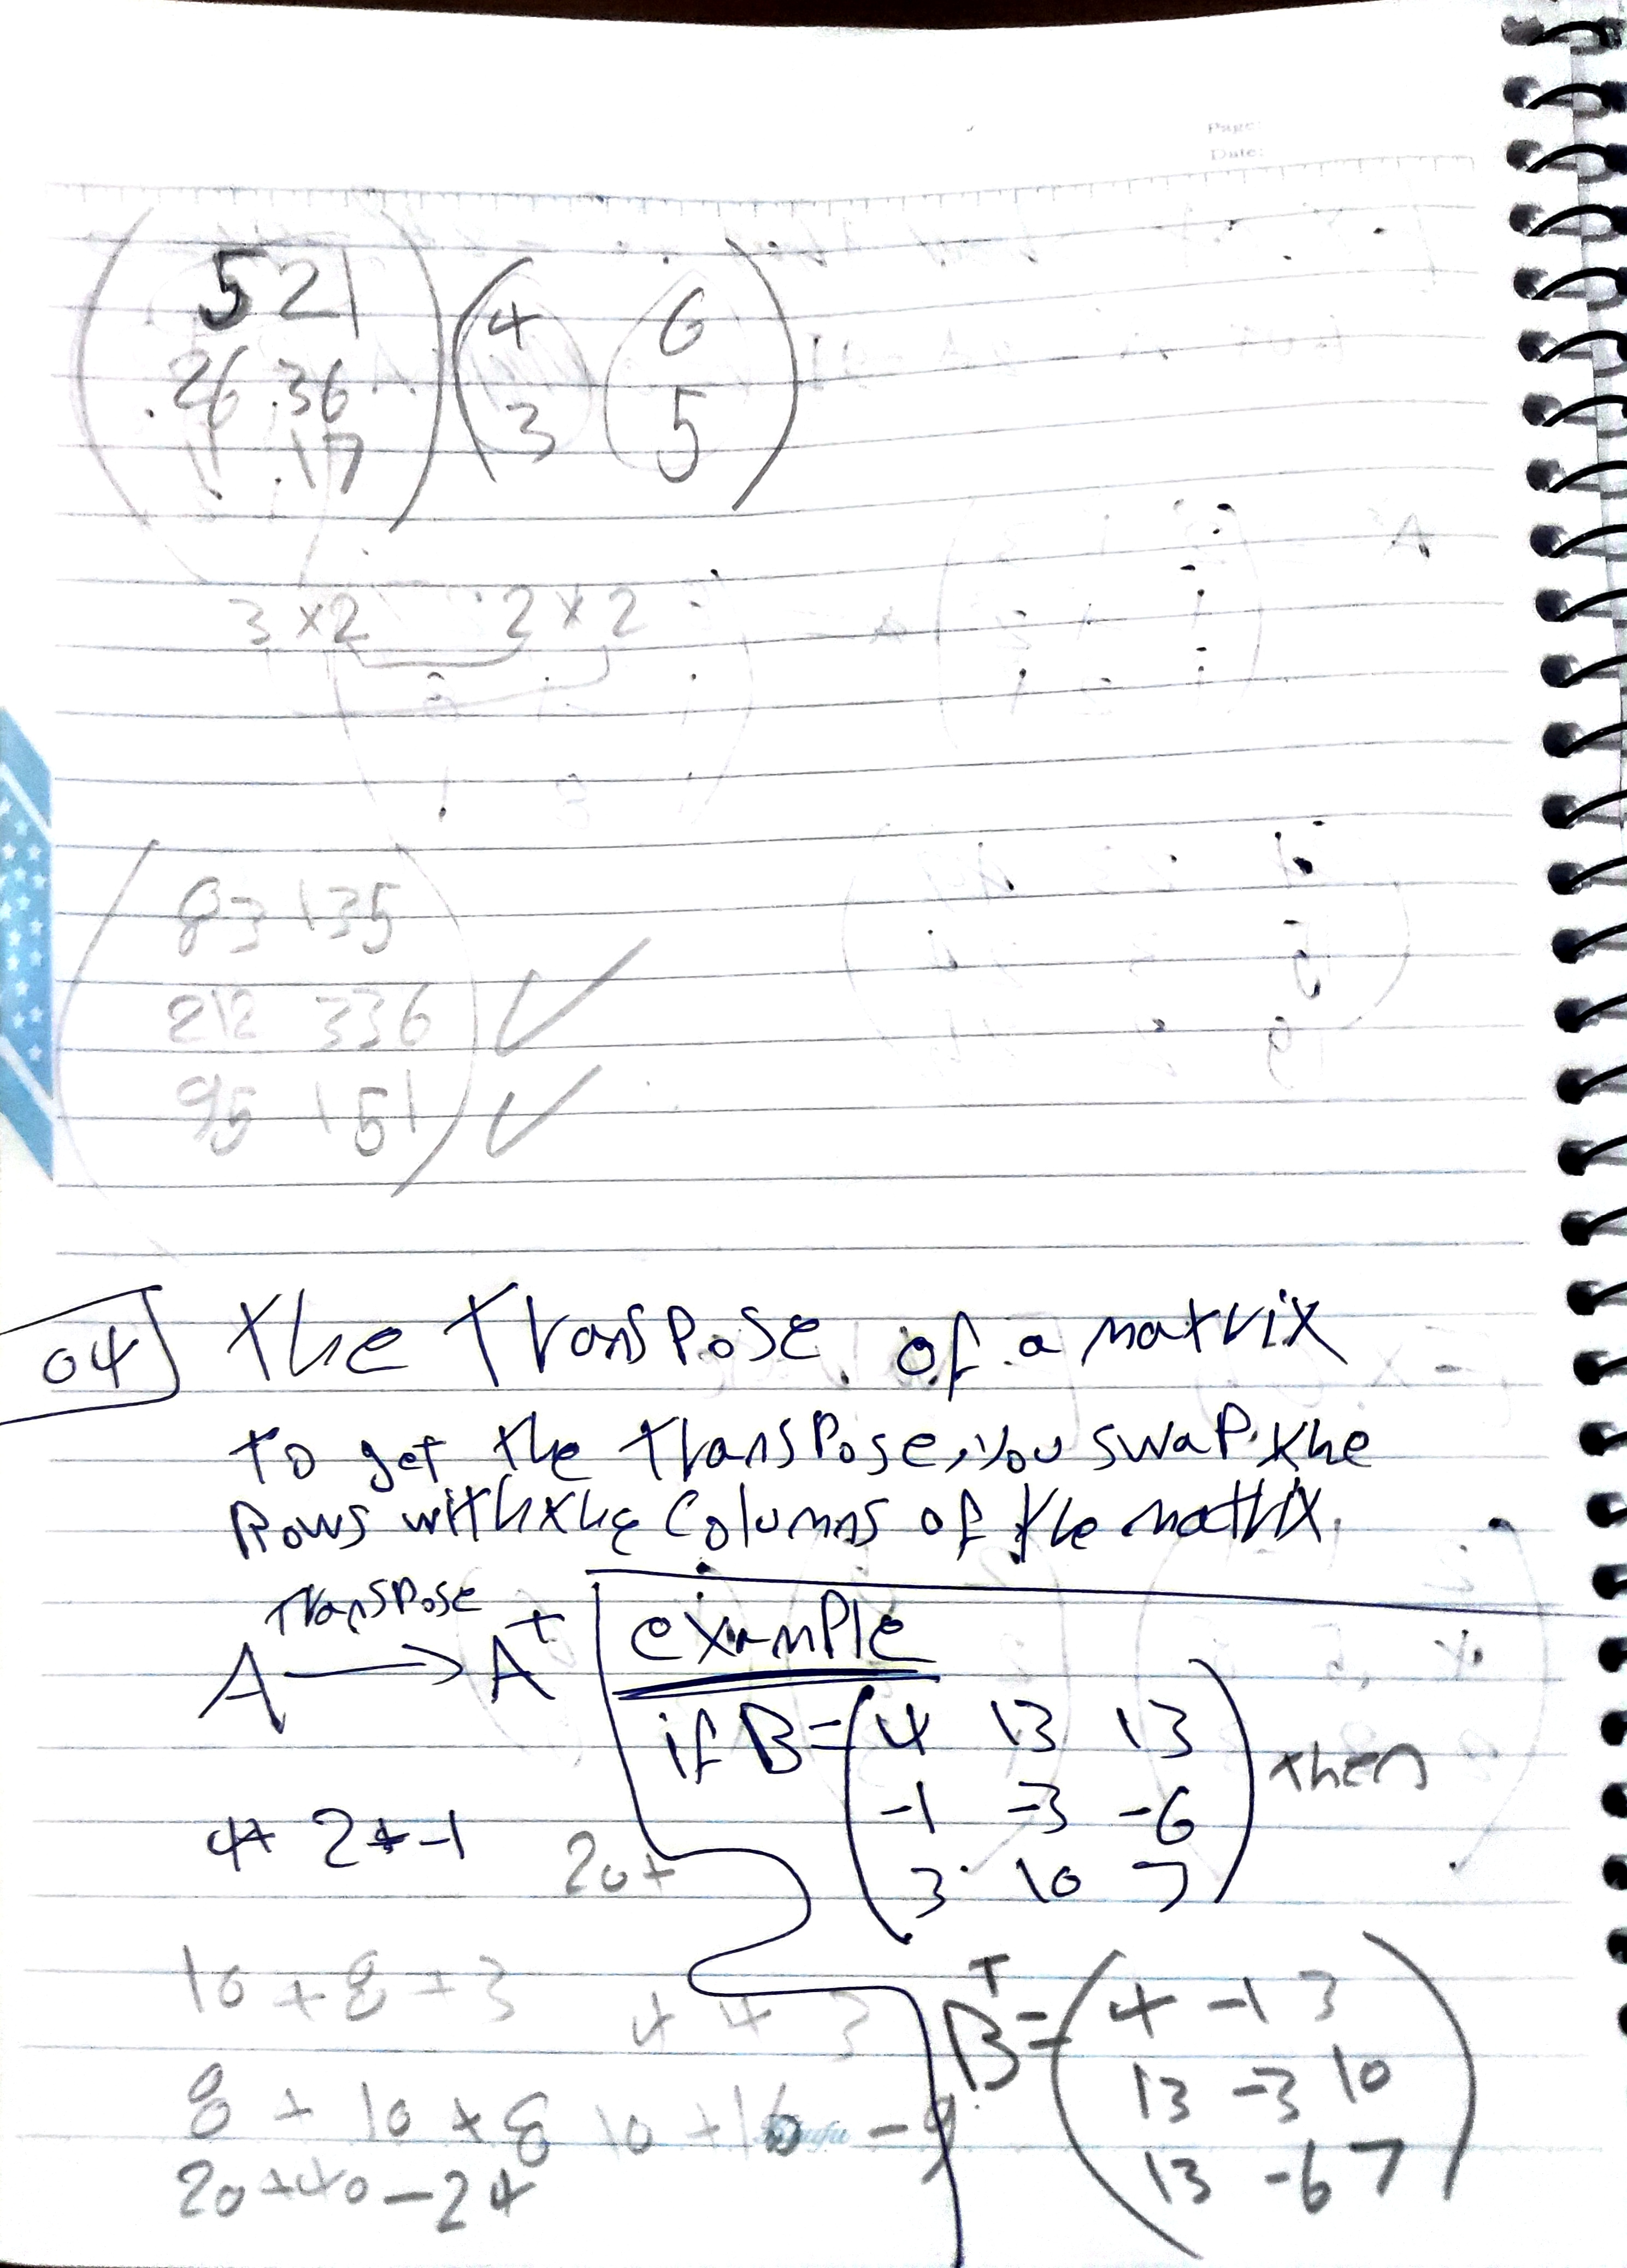 Page:
Date:
5 21
26 36
11 17
4 6
3 5
3×2 2×2
83 135
212 336
95 151
04 the transpose of a matrix
to get the transpose, you swap the
Rows with the columns of the matrix.
Transpose
A → A^t
example
if B = 4 13 13
-1 -3 -6
3 10 7
then
4+ 2+-1
20+
10+8+3
4 4 3
8 + 10 + 8
10 + 16 - 9
20+40-24
B^T = 4 -1 3
13 -3 10
13 -6 7